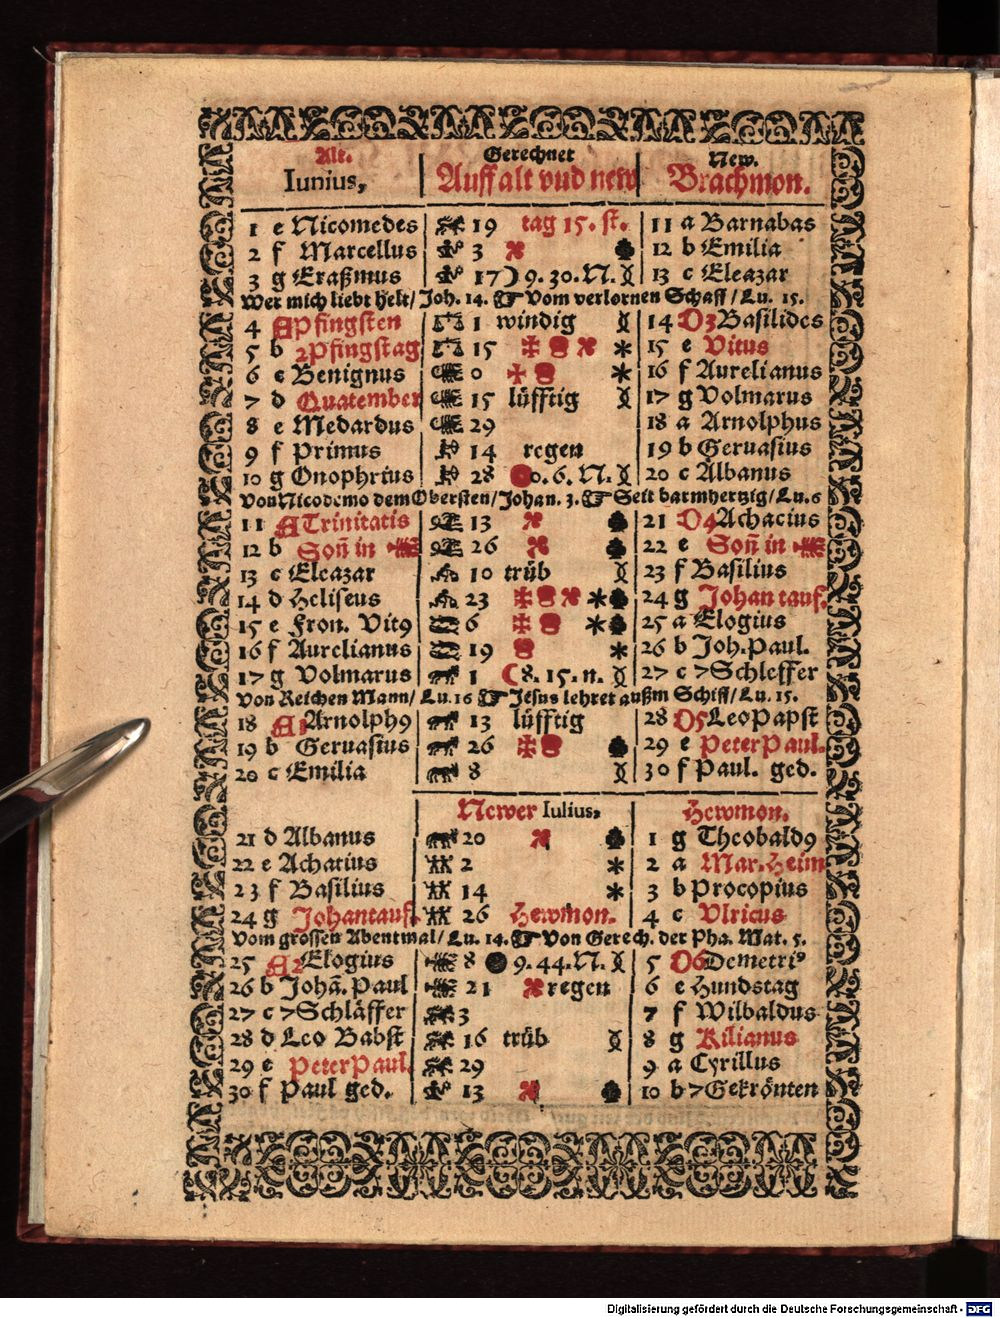 Alt. Gerechnet New.
Iunius, Auff alt vnd new Brachmon.
1 e Nicomedes 19 tag 15. st. 11 a Barnabas
2 f Marcellus 3 12 b Emilia
3 g Eraßmus 17 ☽ 9. 30. N. 13 c Eleazar
Wer mich liebt helt/ Joh. 14. ☞ Vom verlornen Schaff/ Lu. 15.
4 A Pfingsten 1 windig 14 O3 Basilides
5 b 2Pfingstag 15 ✠ * 15 e Vitus
6 c Benignus 0 * 16 f Aurelianus
7 d Quatember 15 lüfftig 17 g Volmarus
8 e Medardus 29 18 a Arnolphus
9 f Primus 14 regen 19 b Geruasius
10 g Onophrius 28 0. 6. N. 20 c Albanus
Von Nicodemo dem Obersten/ Johan. 3. ☞ Seit barmhertzig/ Lu. 6
11 A Trinitatis 13 21 O4 Achacius
12 b Soñ in 26 22 e Soñ in
13 c Eleazar 10 trüb 23 f Basilius
14 d Heliseus 23 ✠ * 24 g Johan tauf.
15 e Fron. Vit9 6 ✠ * 25 a Elogius
16 f Aurelianus 19 * 26 b Joh. Paul.
17 g Volmarus 1 ☾ 8. 15. n. 27 c 7Schleffer
Von Reichen Mann/ Lu. 16 ☞ Jesus lehret außm Schiff/ Lu. 15.
18 A1 Arnolph9 13 lüfftig 28 O5 Leo Papst
19 b Geruasius 26 ✠ 29 e Peter Paul.
20 c Emilia 8 30 f Paul. ged.
Newer Iulius, Hewmon.
21 d Albanus 20 1 g Theobald9
22 e Achatius 2 * 2 a Mar. Heim
23 f Basilius 14 * 3 b Procopius
24 g Johantauf. 26 Hewmon. 4 c Vlricus
Vom grossen Abentmal/ Lu. 14. ☞ Von Gerech. der Pha. Mat. 5.
25 A2 Elogius 8 ● 9. 44. N. 5 O6 Demetri9
26 b Johā. Paul 21 regen 6 e Hundstag
27 c 7Schläffer 3 7 f Wilbaldus
28 d Leo Babst 16 trüb 8 g Kilianus
29 e Peter Paul. 29 9 a Cyrillus
30 f Paul ged. 13 10 b 7Gekrönten
Digitalisierung gefördert durch die Deutsche Forschungsgemeinschaft - DFG